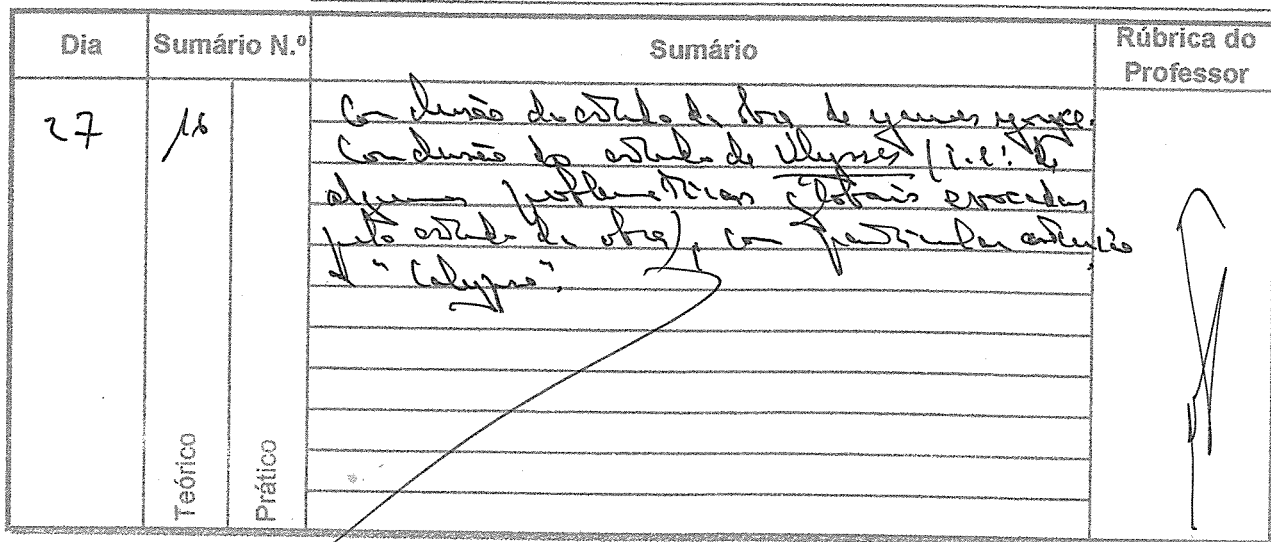 Dia Sumário N.º Sumário Rúbrica do Professor
27 16
Conclusão do estudo da obra de James Joyce.
Conclusão do estudo de Ulysses (i.e. de
algumas problemáticas globais evocadas
pelo estudo da obra), com particular atenção
a "Calypso".
Teórico Prático